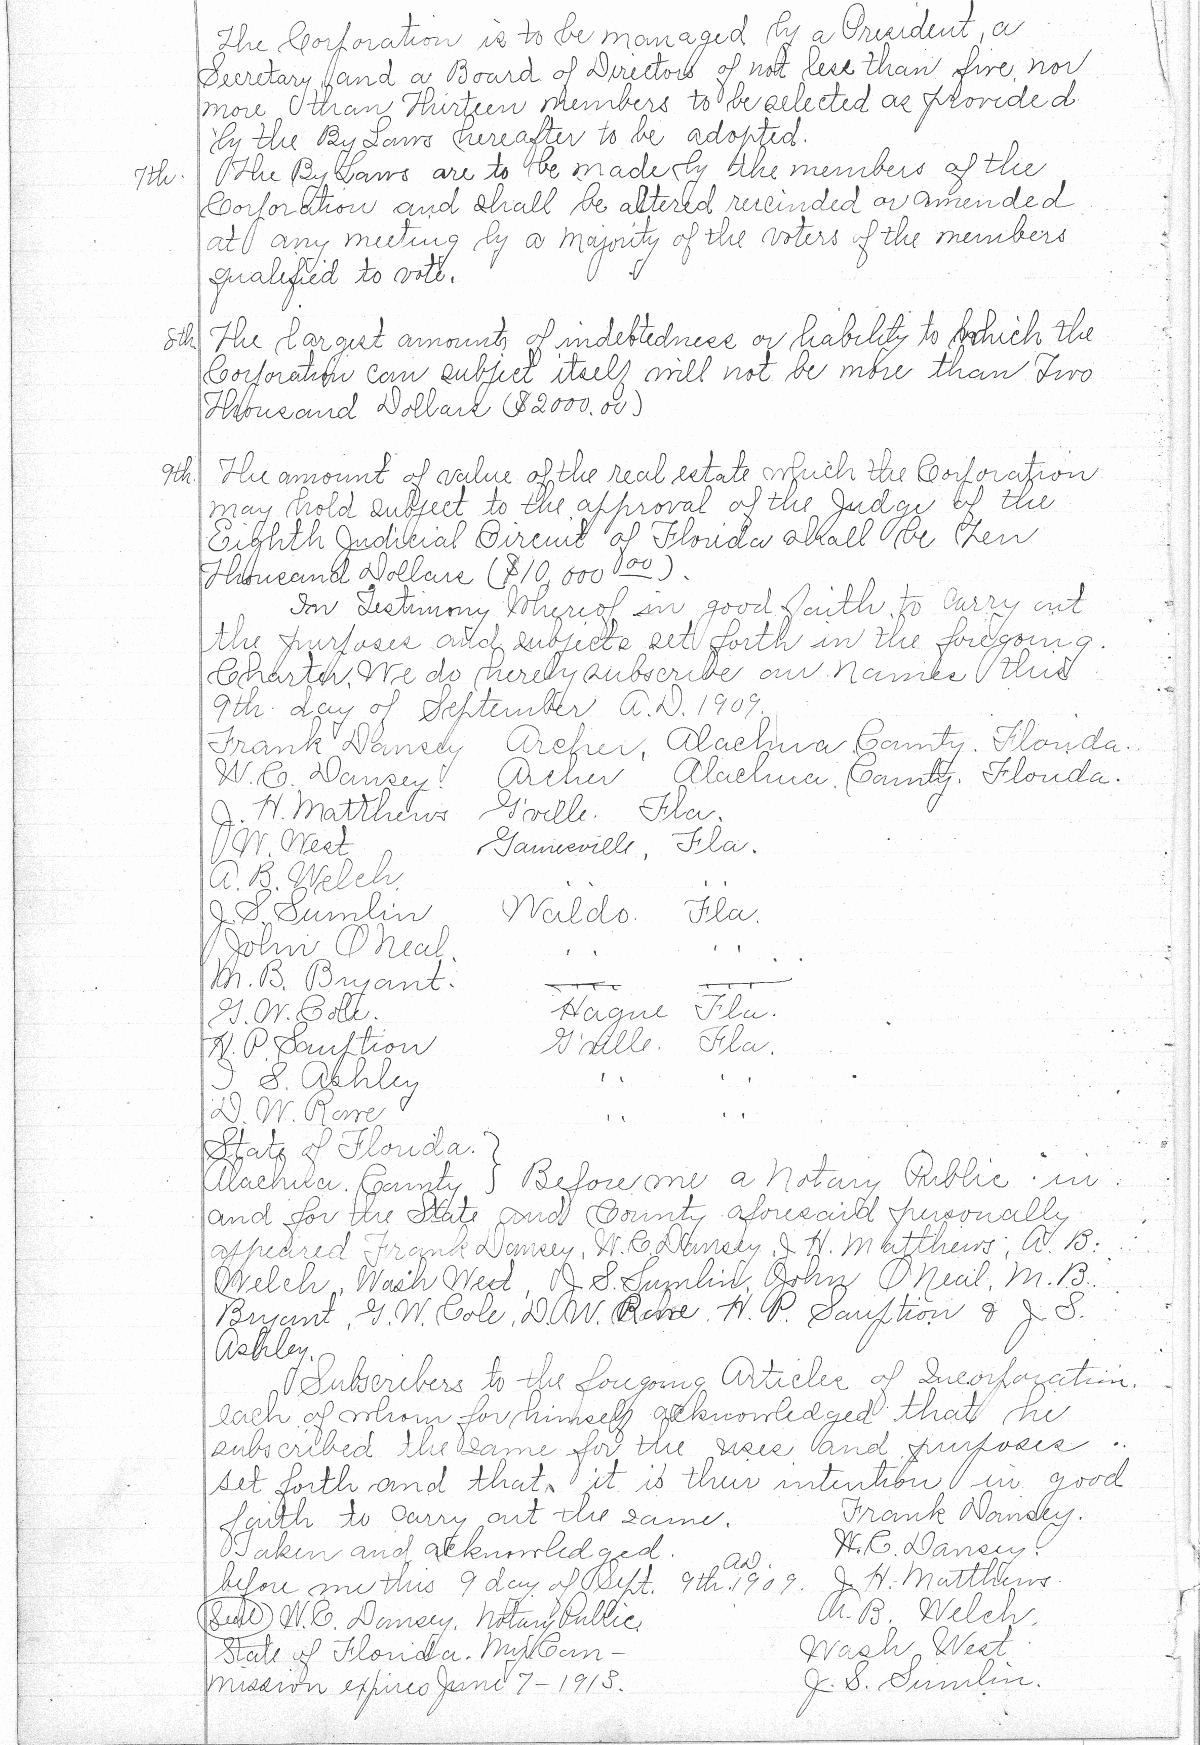 The Corporation is to be managed by a President, a
Secretary, and a Board of Directors of not less than five, nor
more than Thirteen members to be selected as provided
by the By Laws hereafter to be adopted.
7th. The By Laws are to be made by the members of the
Corporation and shall be altered rescinded or amended
at any meeting by a majority of the voters of the members
qualified to vote.
8th. The largest amounts of indebtedness or liability to which the
Corporation can subject itself will not be more than Two
Thousand Dollars ($2000.00)
9th. The amount of value of the real estate which the Corporation
may hold subject to the approval of the Judge of the
Eighth Judicial Circuit of Florida shall be Ten
Thousand Dollars ($10,000 00).
In Testimony Whereof in good faith to carry out
the purposes and subjects set forth in the foregoing.
Charter, We do hereby subscribe our names this
9th day of September A.D. 1909.
Frank Dansey Archer, Alachua County. Florida.
W. C. Dansey. Archer Alachua County. Florida.
J. H. Matthews G'ville. Fla.
W. West Gainesville, Fla.
A. B. Welch. " "
J. S. Sumlin Waldo. Fla.
John O'Neal. " "
M. B. Bryant.
G. W. Cole. Hague Fla.
H. P. Sauftion G'ville. Fla.
I S. Ashley " "
D. W. Rowe " "
State of Florida. }
Alachua. County } Before me a Notary Public in
and for the State and County aforesaid personally
appeared Frank Dansey, W. C. Dansey, J H. Matthews, A. B.
Welch, Wash West, J. S. Sumlin, John O'Neal, M. B.
Bryant, G. W. Cole, D. W. Rowe, H. P. Sauftion & J. S.
Ashley.
Subscribers to the foregoing Articles of Incorporation.
each of whom for himself acknowledged that he
subscribed the same for the uses and purposes
set forth and that it is their intention in good
faith to carry out the same. Frank Dansey.
Taken and acknowledged. W. C. Dansey.
before me this 9 day of Sept. 9th. A.D. 1909. J H. Matthews.
Seal W. C. Dansey, Notary Public, A. B. Welch.
State of Florida. My Com- Wash West
mission expires June 7-1913. J. S. Sumlin.